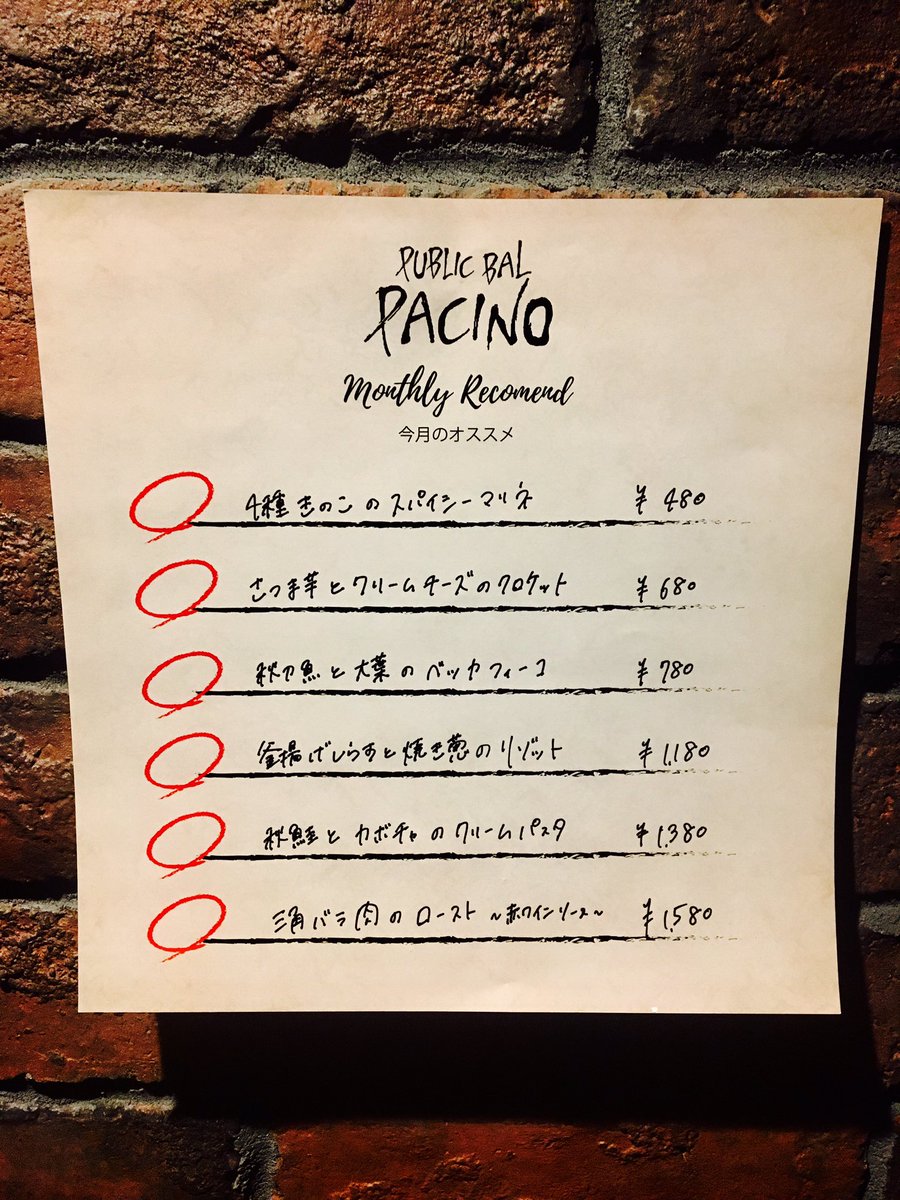 PUBLIC BAL
PACINO
Monthly Recomend
今月のオススメ
4種きのこのスパイシーマリネ ¥480
さつま芋とクリームチーズのクロケット ¥680
秋刀魚と大葉のベッカフィーコ ¥780
釜揚げしらすと焼き葱のリゾット ¥1,180
秋鮭とカボチャのクリームパスタ ¥1,380
三角バラ肉のロースト ~赤ワインソース~ ¥1,580